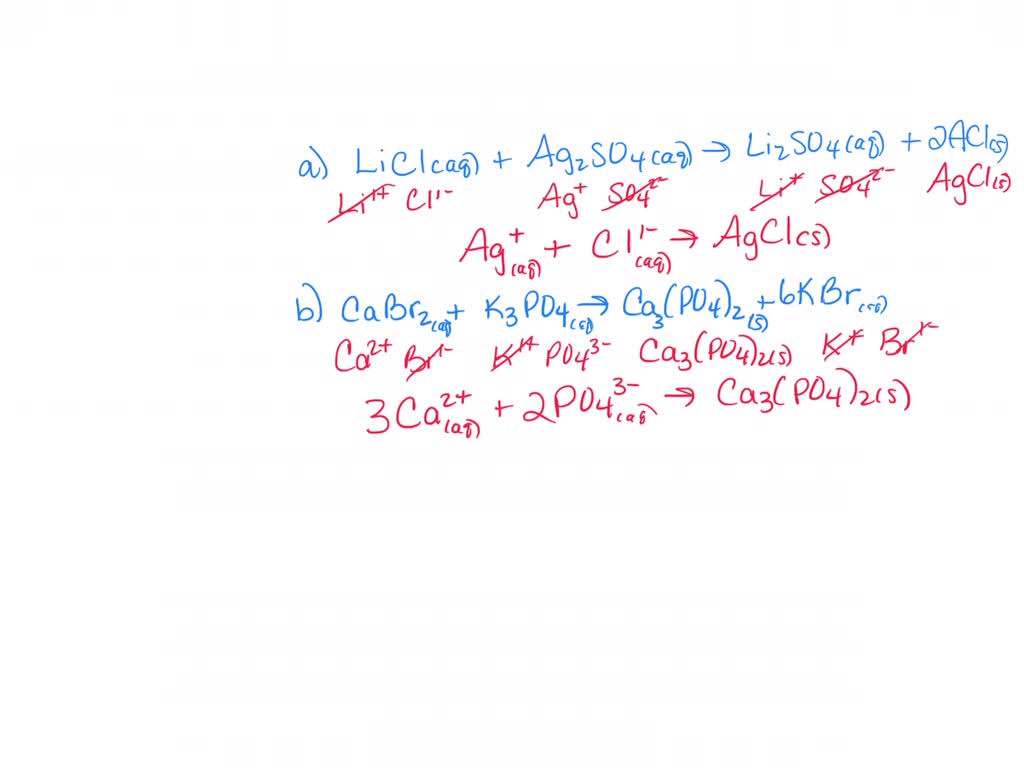 a) LiCl(aq) + Ag₂SO₄(aq) → Li₂SO₄(aq) + 2ACl(s)
Li¹⁺ Cl¹⁻ Ag⁺ SO₄²⁻ Li⁺ SO₄²⁻ AgCl(s)
Ag⁺(aq) + Cl¹⁻(aq) → AgCl(s)
b) CaBr₂(aq) + K₃PO₄(aq) → Ca₃(PO₄)₂(s) + 6KBr(aq)
Ca²⁺ Br¹⁻ K¹⁺ PO₄³⁻ Ca₃(PO₄)₂(s) K⁺ Br¹⁻
3Ca²⁺(aq) + 2PO₄³⁻(aq) → Ca₃(PO₄)₂(s)